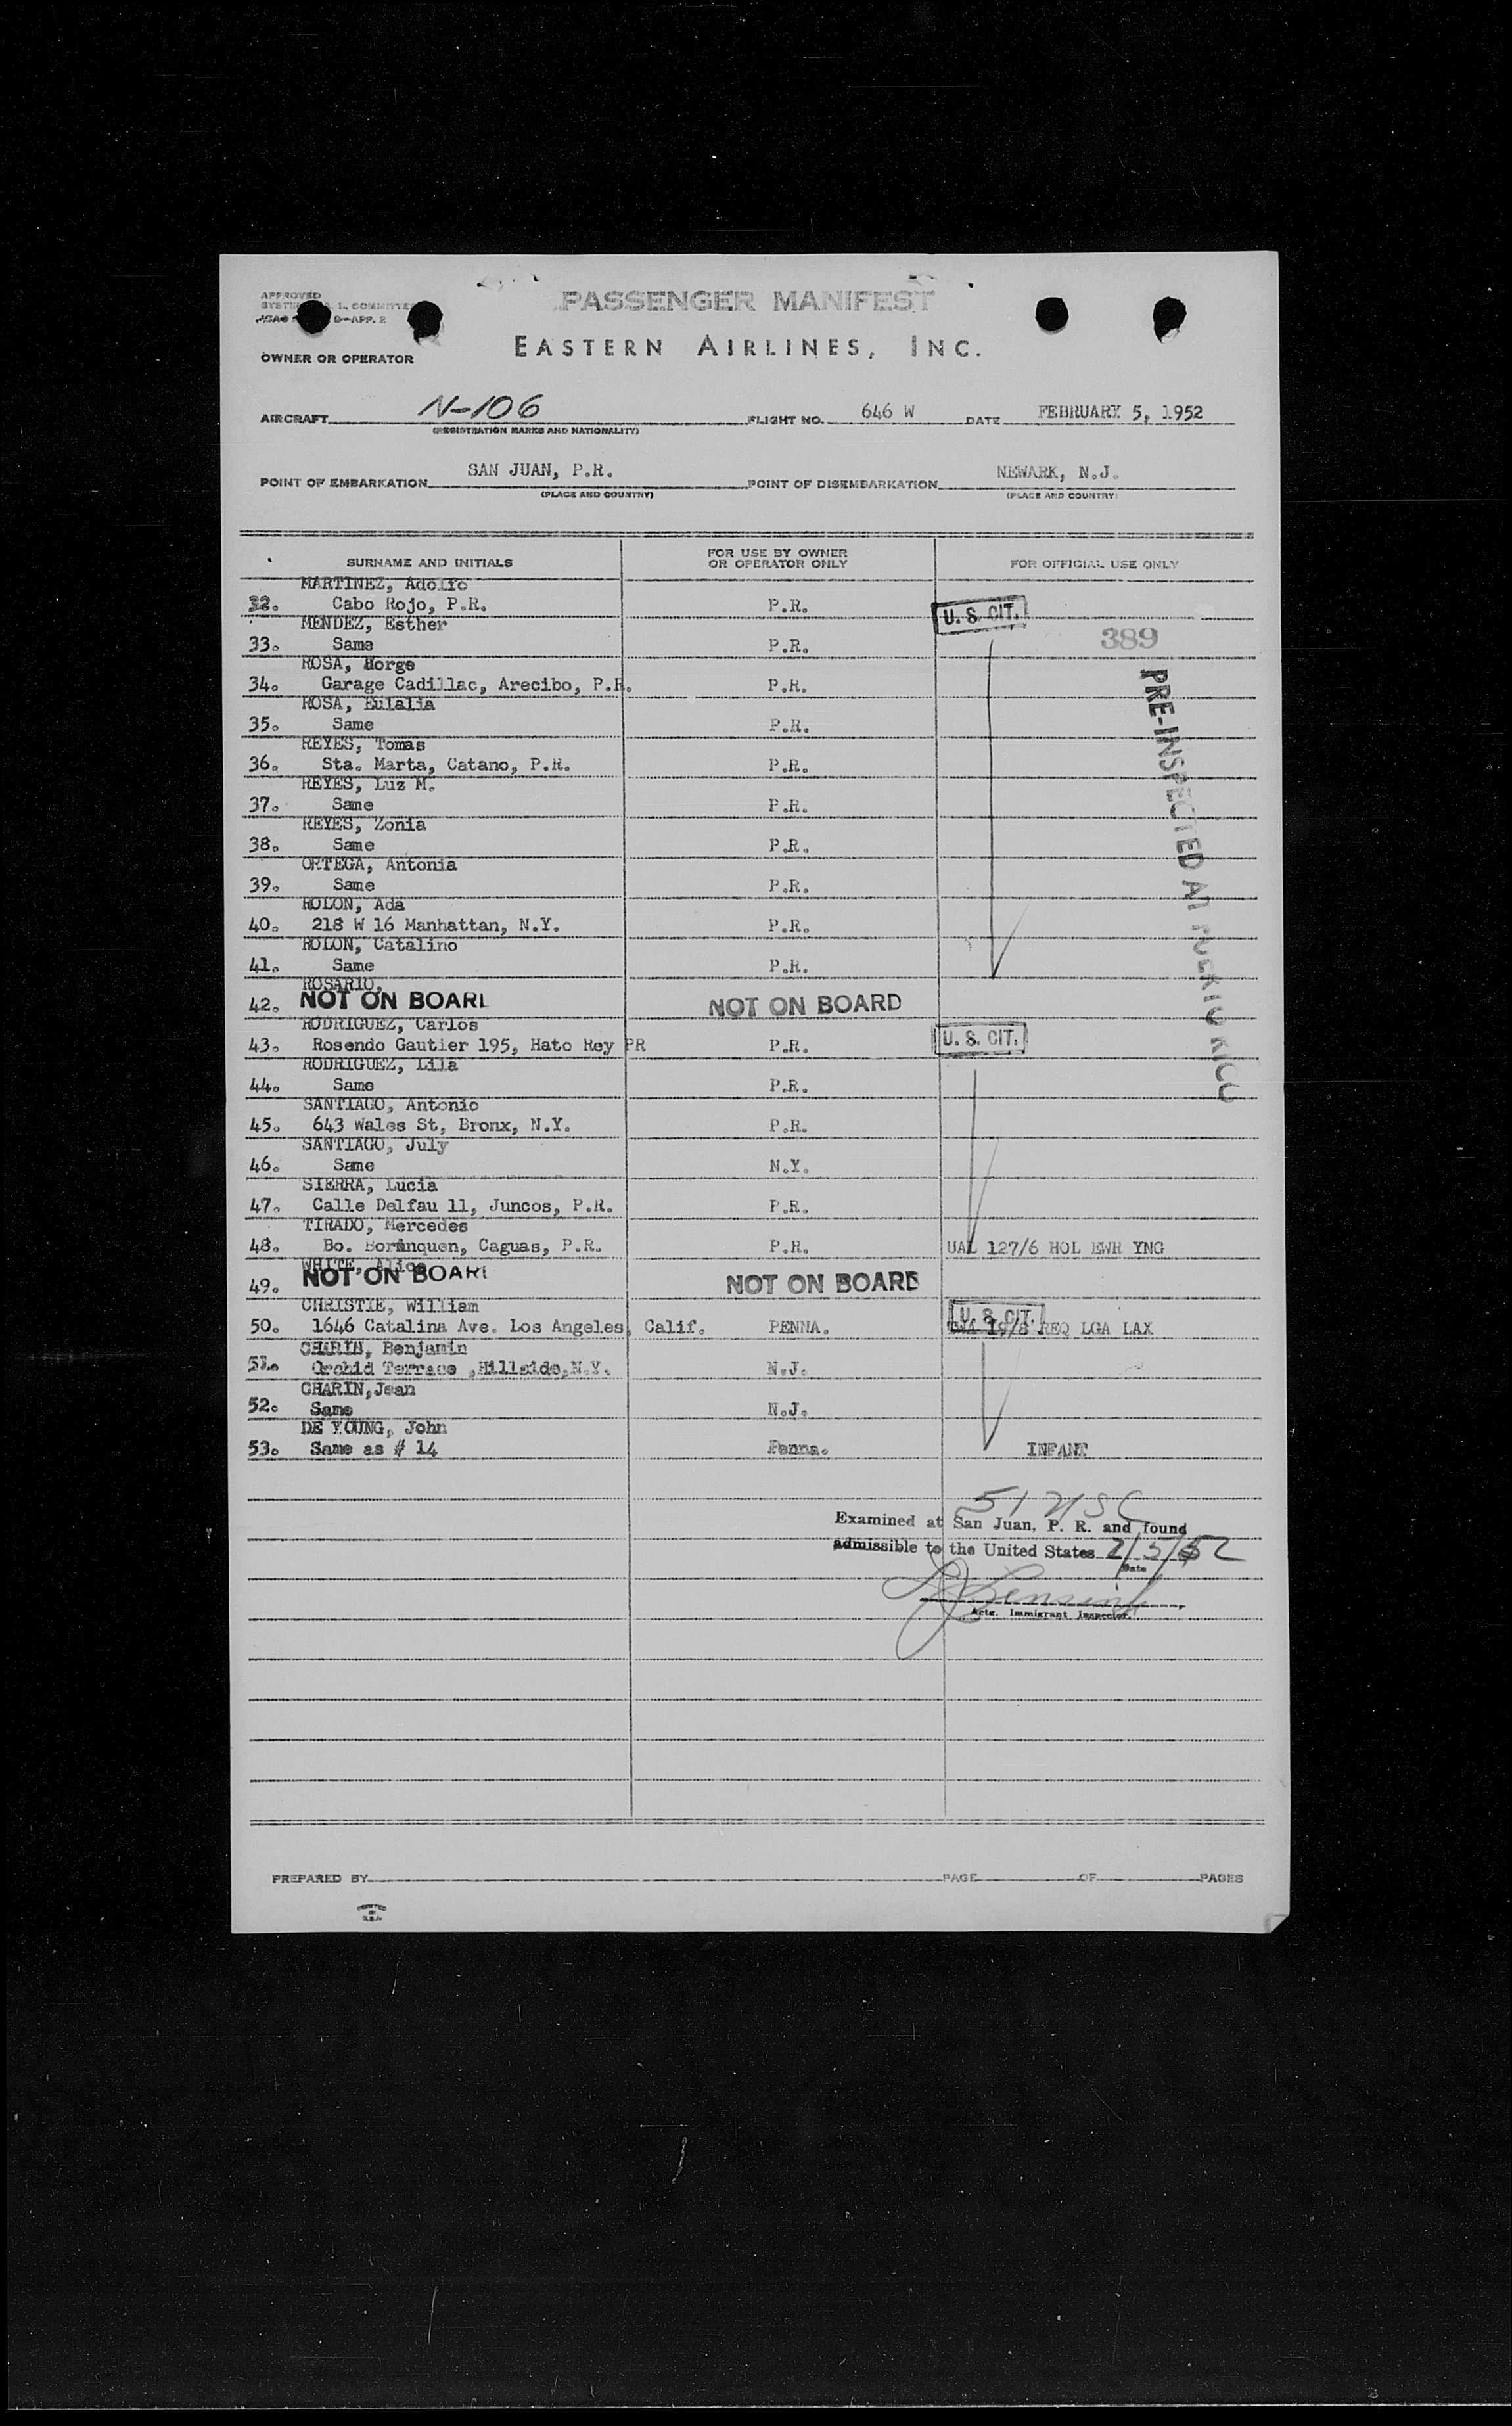 APPROVED
COMMITTEE
D-APP. 2
PASSENGER MANIFEST
EASTERN AIRLINES, INC.
OWNER OR OPERATOR
AIRCRAFT N-106 FLIGHT NO. 646 W DATE FEBRUARY 5, 1952
(REGISTRATION MARKS AND NATIONALITY)
POINT OF EMBARKATION SAN JUAN, P.R. POINT OF DISEMBARKATION NEWARK, N.J.
(PLACE AND COUNTRY) (PLACE AND COUNTRY)
SURNAME AND INITIALS FOR USE BY OWNER OR OPERATOR ONLY FOR OFFICIAL USE ONLY
MARTINEZ, Adolfo
32. Cabo Rojo, P.R. P.R. U. S. CIT.
MENDEZ, Esther
33. Same P.R. 389
PRE-INSPECTED AT PUERTO RICO
ROSA, Horge
34. Garage Cadillac, Arecibo, P.R. P.R.
ROSA, Eulalia
35. Same P.R.
REYES, Tomas
36. Sta. Marta, Catano, P.R. P.R.
REYES, Luz M.
37. Same P.R.
REYES, Zonia
38. Same P.R.
ORTEGA, Antonia
39. Same P.R.
ROLON, Ada
40. 218 W 16 Manhattan, N.Y. P.R.
ROLON, Catalino
41. Same P.R.
ROSARIO,
42. NOT ON BOARD NOT ON BOARD
RODRIGUEZ, Carlos
43. Rosendo Gautier 195, Hato Rey PR P.R. U. S. CIT.
RODRIGUEZ, Lila
44. Same P.R.
SANTIAGO, Antonio
45. 643 Wales St, Bronx, N.Y. P.R.
SANTIAGO, July
46. Same N.Y.
SIERRA, Lucia
47. Calle Delfau 11, Juncos, P.R. P.R.
TIRADO, Mercedes
48. Bo. Borinquen, Caguas, P.R. P.R. UAL 127/6 HOL EWR YNG
WHITE, Alice
49. NOT ON BOARD NOT ON BOARD
CHRISTIE, William U. S. CIT.
50. 1646 Catalina Ave. Los Angeles, Calif. PENNA. TWA 19/8 REQ LGA LAX
CHARIN, Benjamin
51. Orchid Terrace ,Hillside,N.Y. N.J.
CHARIN,Jean
52. Same N.J.
DE YOUNG, John
53. Same as # 14 Penna. INFANT
51 USC
Examined at San Juan, P. R. and found
admissible to the United States 2/5/52
Date
Actg. Immigrant Inspector.
PREPARED BY PAGE OF PAGES